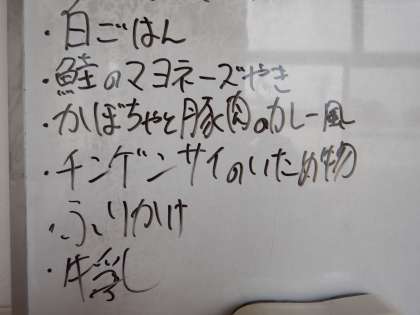 ・白ごはん
・鮭のマヨネーズやき
・かぼちゃと豚肉のカレー風
・チンゲンサイのいため物
・ふりかけ
・牛乳